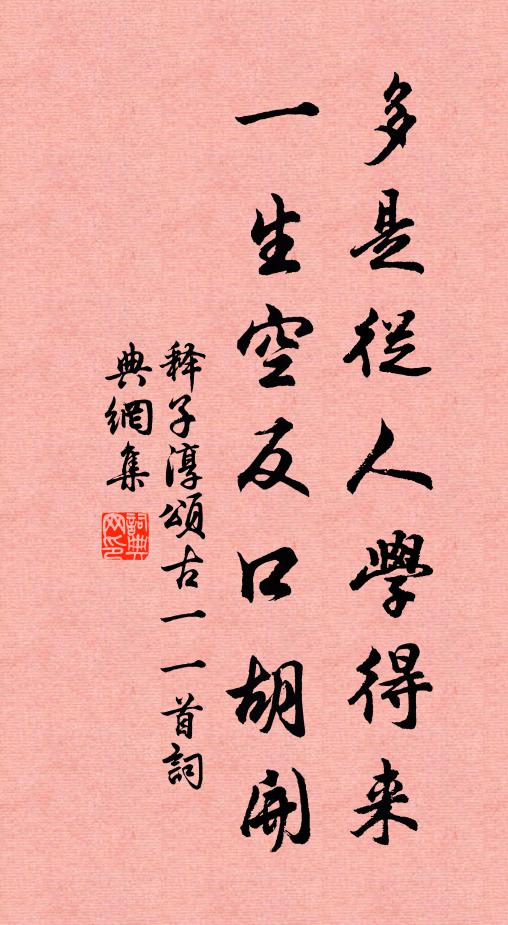 多是從人學得来
一生空反口胡開
释子淳頌古一一首詞
典網集
詞典网印